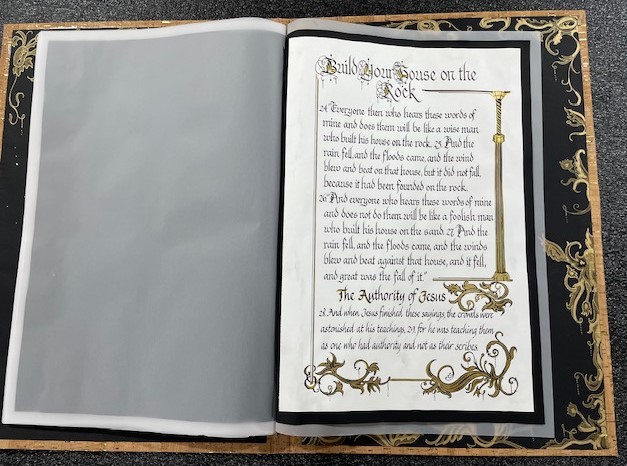 Build Your House on the
Rock
24. "Everyone then who hears these words of
mine and does them will be like a wise man
who built his house on the rock. 25. And the
rain fell, and the floods came, and the wind
blew and beat on that house, but it did not fall,
because it had been founded on the rock.
26. "And everyone who hears these words of mine
and does not do them will be like a foolish man
who built his house on the sand. 27. And the
rain fell, and the floods came, and the winds
blew and beat against that house, and it fell,
and great was the fall of it."
The Authority of Jesus
28. And when Jesus finished these sayings, the crowds were
astonished at his teachings, 29. for he was teaching them
as one who had authority and not as their scribes.